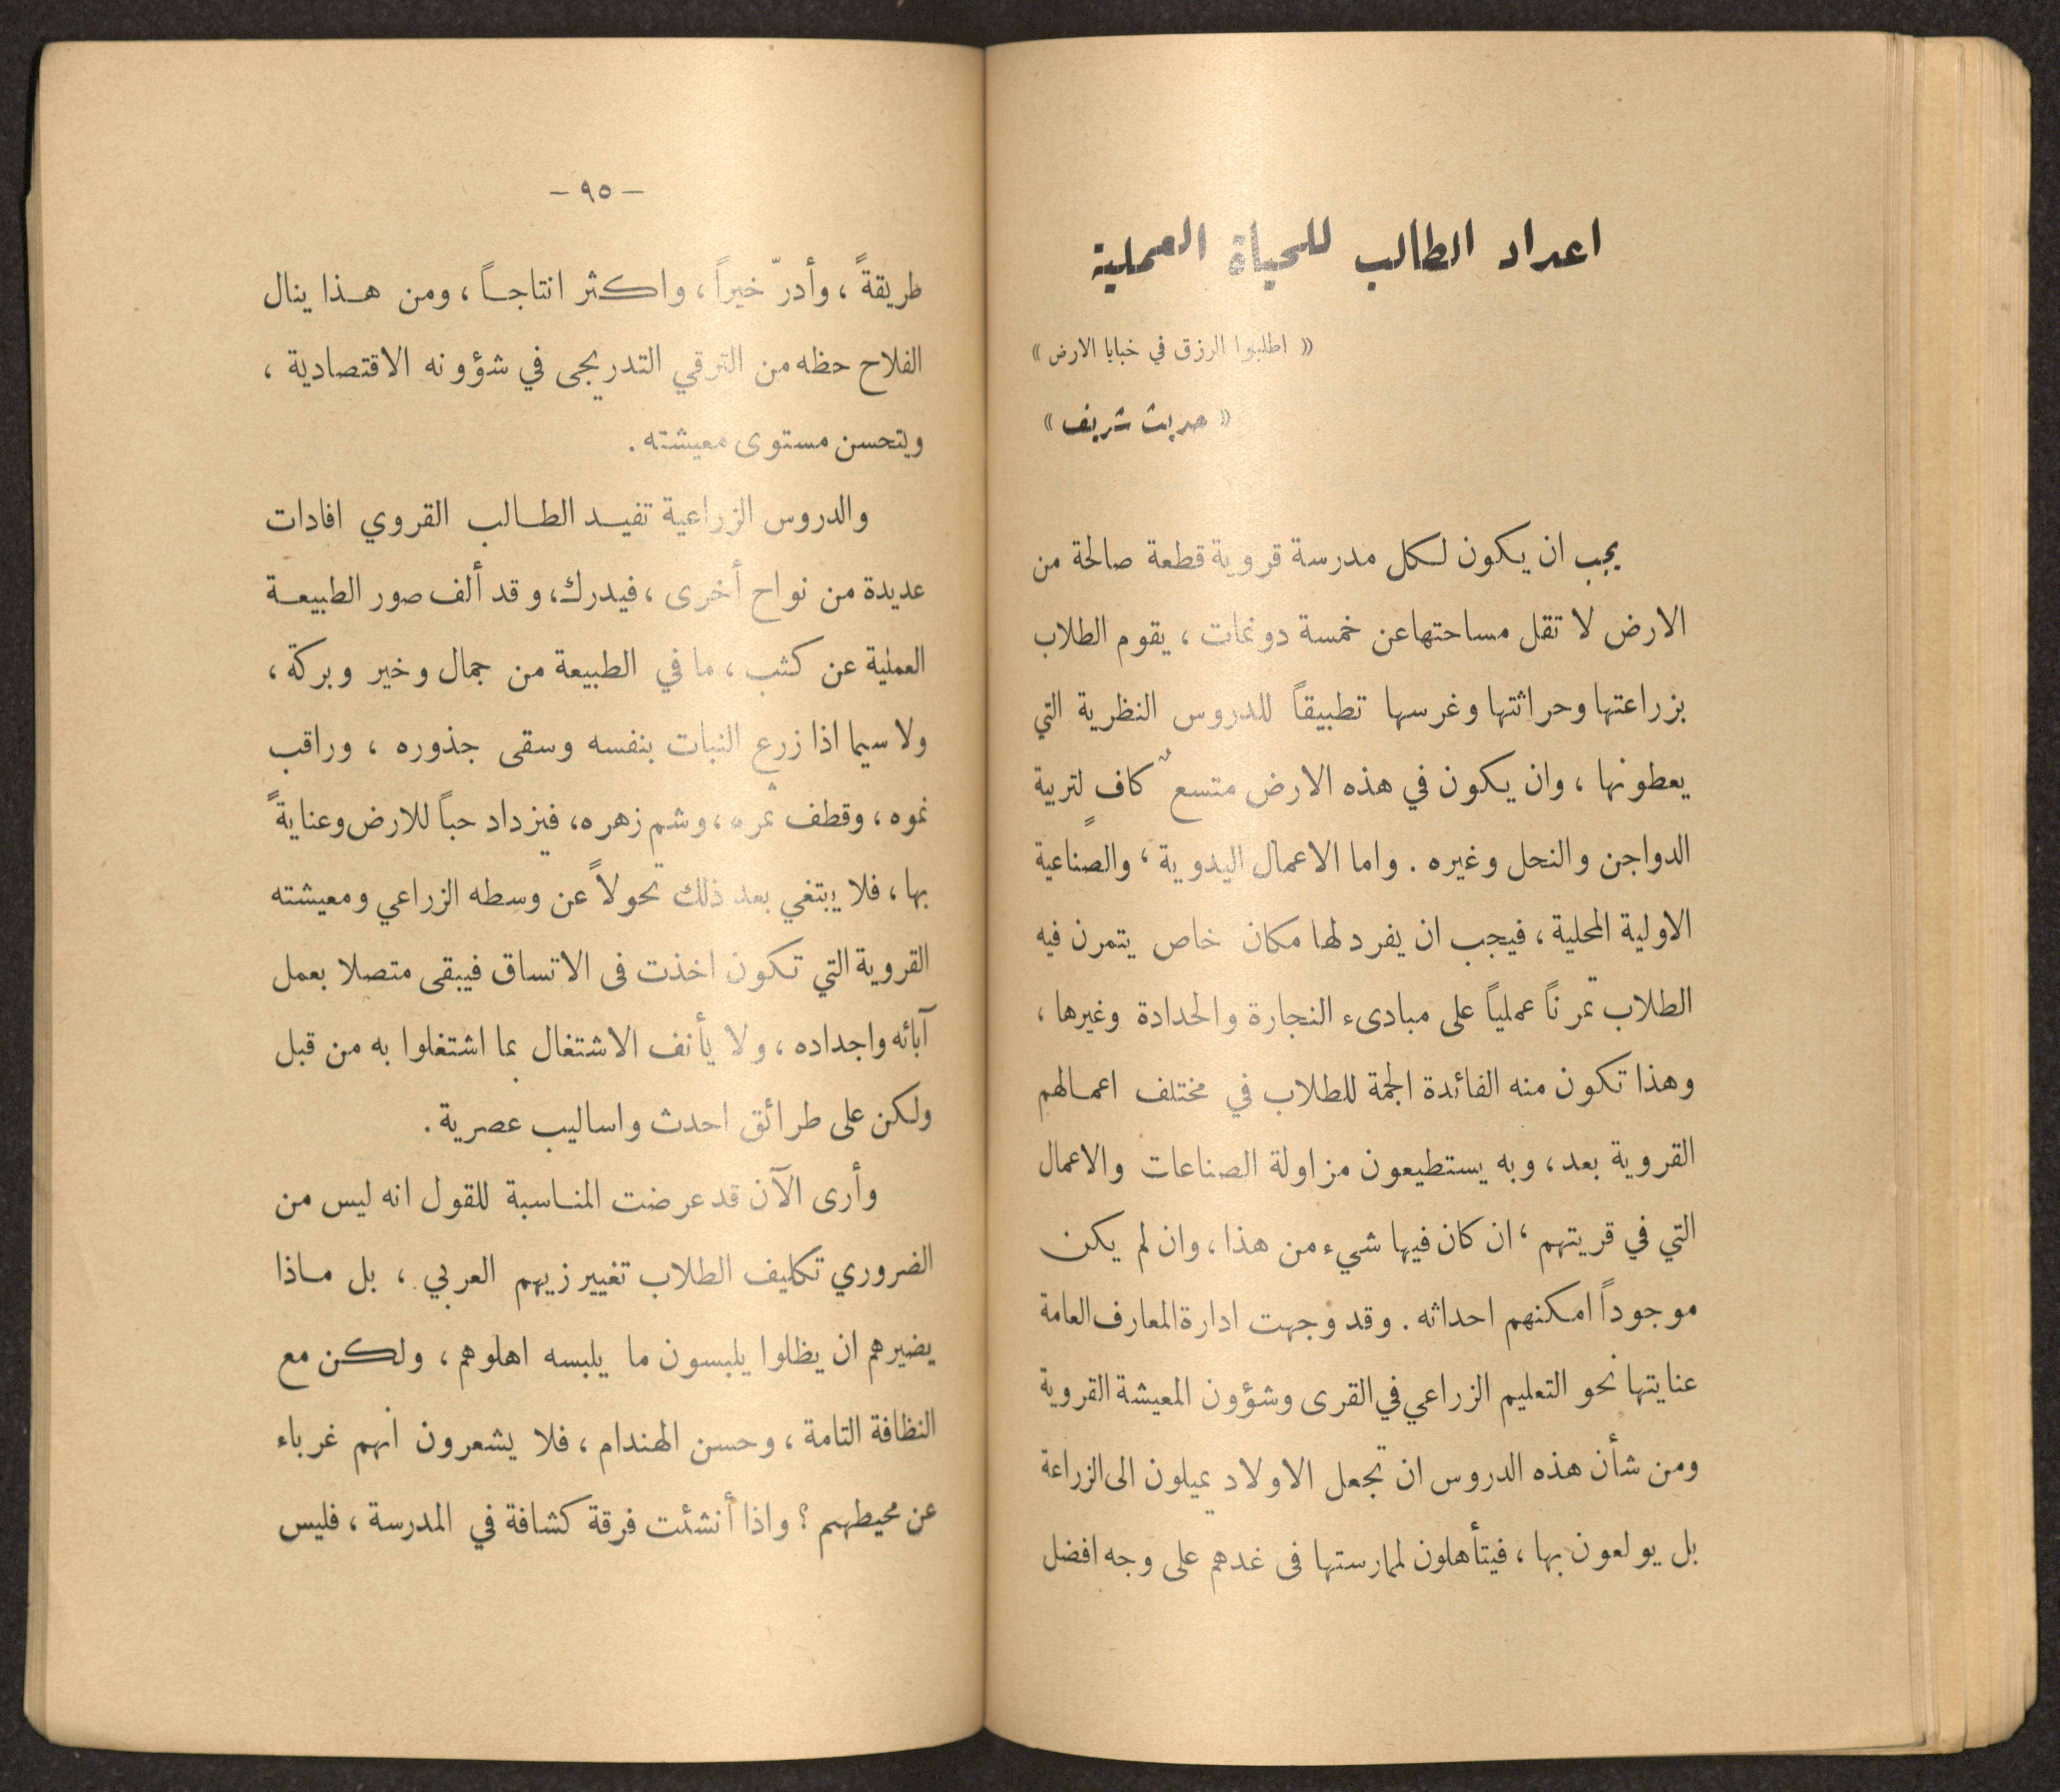 اعداد الطالب للحياة العملية
« اطلبوا الرزق في خبايا الارض »
« حديث شريف »
يجب ان يكون لكل مدرسة قروية قطعة صالحة من
الارض لا تقل مساحتها عن خمسة دونمات ، يقوم الطلاب
بزراعتها وحراثتها وغرسها تطبيقاً للدروس النظرية التي
يعطونها ، وان يكون في هذه الارض متسعٌ كافٍ لتربية
الدواجن والنحل وغيره . واما الاعمال اليدوية ، والصناعية
الاولية المحلية ، فيجب ان يفرد لها مكان خاص يتمرن فيه
الطلاب تمرناً عملياً على مبادىء النجارة والحدادة وغيرها ،
وهذا تكون منه الفائدة الجمة للطلاب في مختلف اعمالهم
القروية بعد ، وبه يستطيعون مزاولة الصناعات والاعمال
التي في قريتهم ، ان كان فيها شيء من هذا ، وان لم يكن
موجوداً امكنهم احداثه . وقد وجهت ادارة المعارف العامة
عنايتها نحو التعليم الزراعي في القرى وشؤون المعيشة القروية
ومن شأن هذه الدروس ان تجعل الاولاد يميلون الى الزراعة
بل يولعون بها ، فيتأهلون لممارستها فى غدهم على وجه افضل
– ٩٥ –
طريقةً ، وأدرّ خيراً ، واكثر انتاجاً ، ومن هذا ينال
الفلاح حظه من الترقي التدريجى في شؤونه الاقتصادية ،
ويتحسن مستوى معيشته .
والدروس الزراعية تفيد الطالب القروي افادات
عديدة من نواح أخرى ، فيدرك ، وقد ألف صور الطبيعة
العملية عن كثب ، ما في الطبيعة من جمال وخير وبركة ،
ولا سيما اذا زرع النبات بنفسه وسقى جذوره ، وراقب
نموه ، وقطف ثمره ، وشم زهره ، فيزداد حباً للارض وعنايةً
بها ، فلا يبتغي بعد ذلك تحولاً عن وسطه الزراعي ومعيشته
القروية التي تكون اخذت فى الاتساق فيبقى متصلا بعمل
آبائه واجداده ، ولا يأنف الاشتغال بما اشتغلوا به من قبل
ولكن على طرائق احدث واساليب عصرية .
وأرى الآن قد عرضت المناسبة للقول انه ليس من
الضروري تكليف الطلاب تغيير زيهم العربي ، بل ماذا
يضيرهم ان يظلوا يلبسون ما يلبسه اهلوهم ، ولكن مع
النظافة التامة ، وحسن الهندام ، فلا يشعرون انهم غرباء
عن محيطهم ؟ واذا أنشئت فرقة كشافة في المدرسة ، فليس